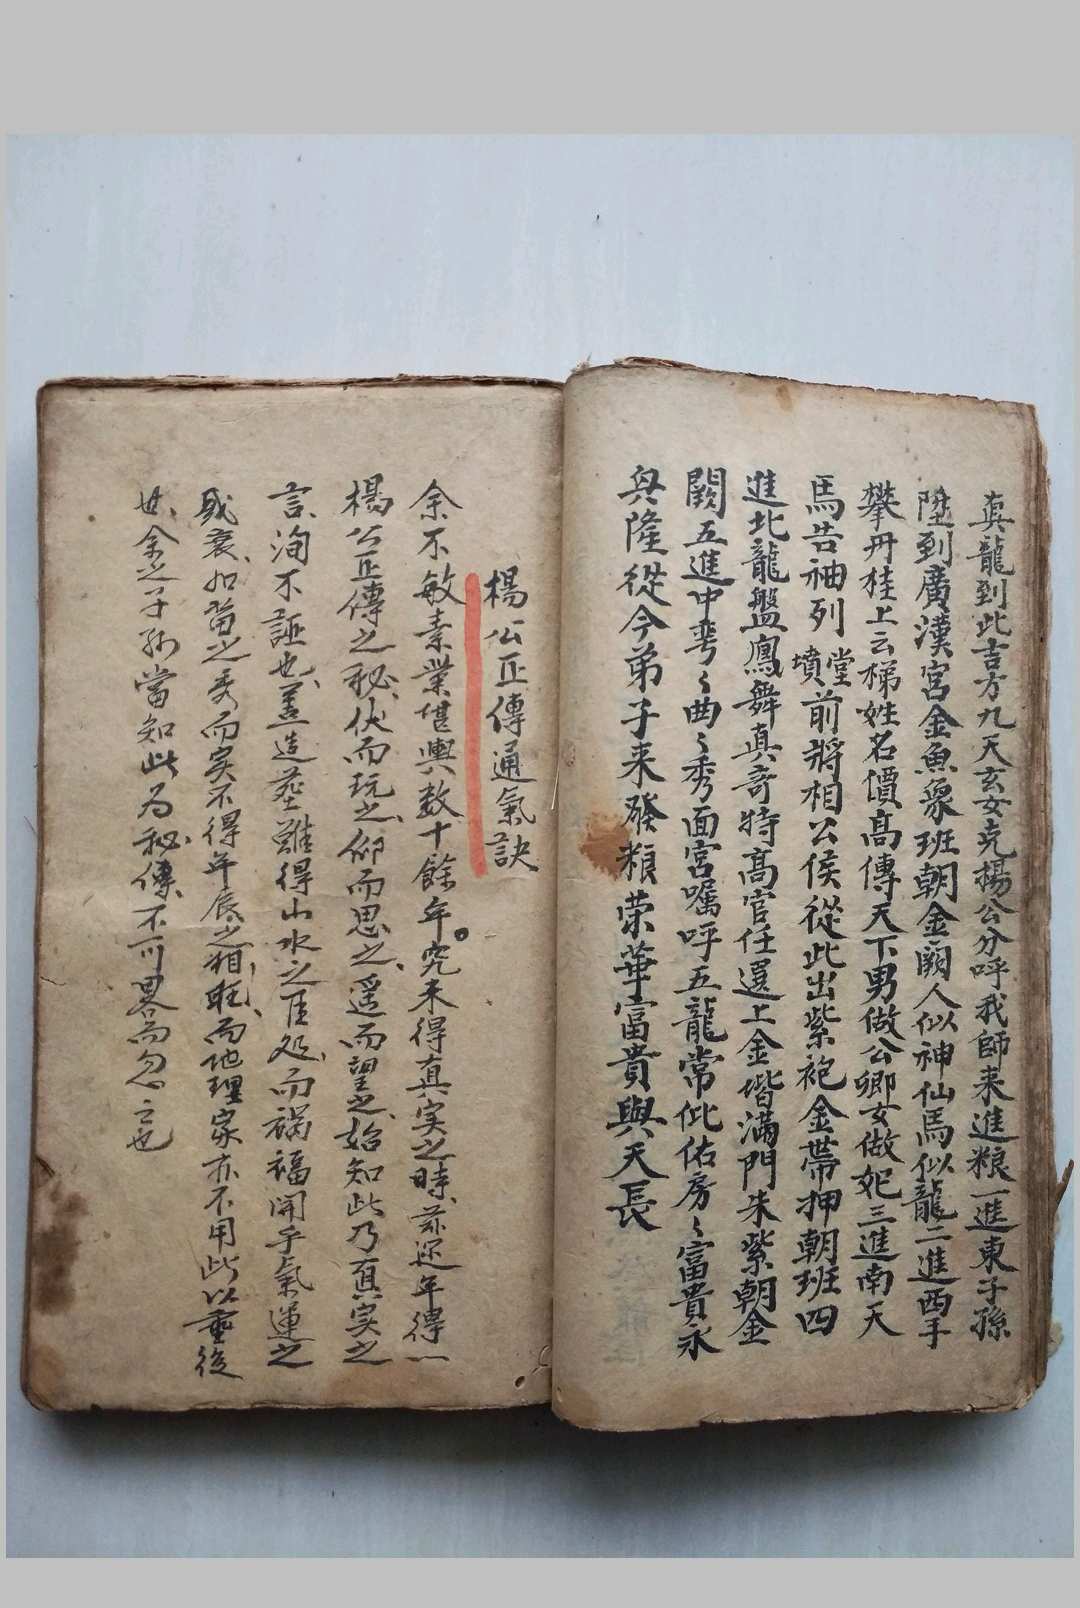 真龍到此吉方九天玄女克楊公分呼我師来進粮一進東子孫
陞到廣漢宮金魚袋班朝金闕人似神仙馬似龍二進西手
攀丹桂上云梯姓名價髙傳天下男做公卿女做妃三進南天
馬告袖列墳堂前將相公侯從此出紫袍金帶押朝班四
進北龍盤鳳舞真奇特髙官任選上金堦滿門朱紫朝金
闕五進中弯々曲々秀面宮囑呼五龍常仳佑房々富貴永
興隆從今弟子来發粮荣華富貴與天長
楊公正傳通氣訣
余不敏素業堪輿数十餘年究未得真实之時茲迩年得
楊公正傳之秘伏而玩之仰而思之遥而望之始知此乃真实之
言洵不誣也盖造葬雖得山水之佳处而禍福開乎氣運之
或衰如苗之秀而实不得年辰之相旺而地理家亦不用此以垂後
世余之子孙當知此为秘傳不可畧而忽之也